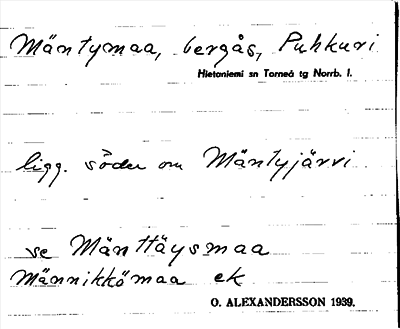 Mäntymaa, bergås, Puhkuri
Hietaniemi sn Torneå tg Norrb. l.
ligg. söder om Mäntyjärvi
se Mänttäysmaa
Männikkömaa ek
O. ALEXANDERSSON 1939.